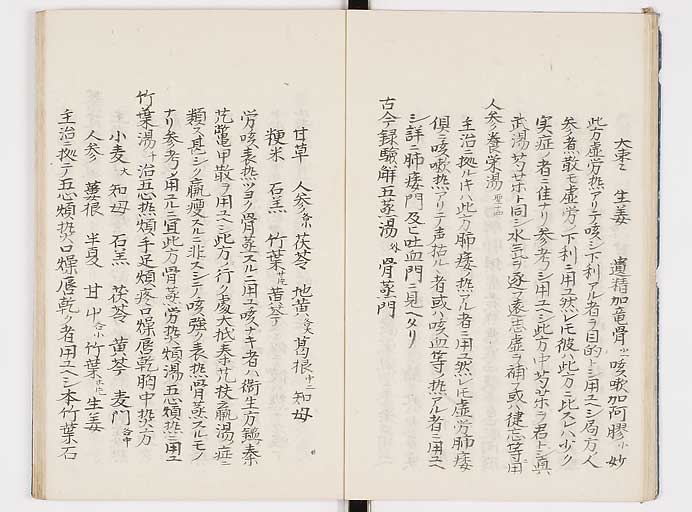 大棗 生姜 遺精加竜骨 咳嗽加阿膠 妙
此方虚労熱アリテ咳シ下利アル者ヲ目的トシ用ユヘシ局方人
参煮散モ虚労ノ下利ニ用ユ然レ𪜈彼ハ此方ニ比スレハ少ク
実症ノ者ニ佳ナリ参考シ用ユヘシ此方中芍薬ヲ君トシ真
武湯芍薬ト同シ水気ヲ逐フ遠志虚ヲ補フ或ハ健忘等用
人参養栄湯
主治ニ拠ルキハ此方肺痿熱アル者ニ用ユ然レ𪜈虚労肺痿
倶ニ咳嗽熱アリテ声枯ル者或ハ咳血等ノ熱アル者ニ用ユヘ
シ詳ニ肺痿門及ヒ吐血門ニ見ヘタリ
古今録験解五蒸湯 骨蒸門
甘草 人参 茯苓 地黄 葛根 知母
粳米 石羔 竹葉 黄芩
労咳表熱ツヨク骨蒸スルニ用ユ咳ナキ者ハ衛生方鑑秦
艽鼈甲散ヲ用ユヘシ此方ノ行ク處大抵秦艽扶羸湯ノ症ニ
類ス甚シク羸痩スルニ非スシテ咳強ク表熱骨蒸スルモノ
ナリ参考シ用ユルニ宜此方骨蒸労熱煩湯五心煩熱ニ用ユ
竹葉湯 治五心熱煩手足煩疼口燥唇乾胸中熱方
小麦 知母 石羔 茯苓 黄芩 麦門
人参 葛根 半夏 甘艸 竹葉 生姜
主治ニ拠テ五心煩熱口燥唇乾ク者用ユヘシ本竹葉石